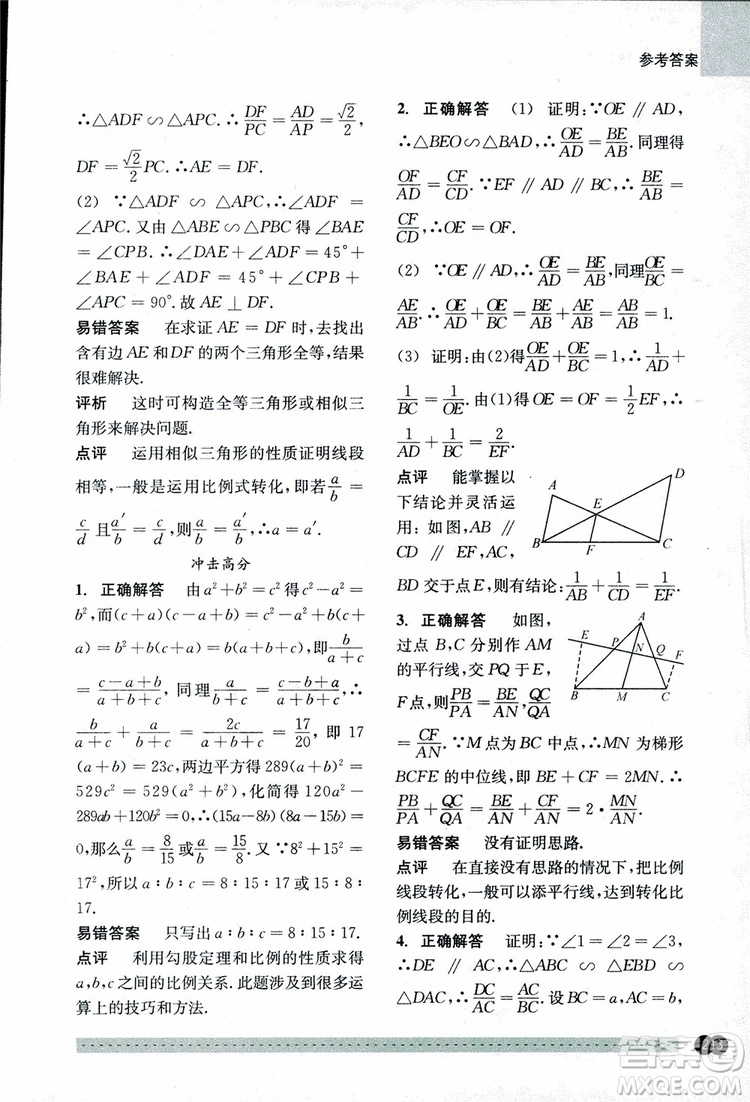 参考答案
∴△ADF∽△APC.∴DF/PC=AD/AP=√2/2,
DF=√2/2PC.∴AE=DF.
(2) ∵△ADF∽△APC,∴∠ADF=
∠APC.又由△ABE∽△PBC得∠BAE
=∠CPB.∴∠DAE+∠ADF=45°+
∠BAE+∠ADF=45°+∠CPB+
∠APC=90°.故AE⊥DF.
易错答案 在求证AE=DF时,去找出
含有边AE和DF的两个三角形全等,结果
很难解决.
评析 这时可构造全等三角形或相似三
角形来解决问题.
点评 运用相似三角形的性质证明线段
相等,一般是运用比例式转化,即若a/b=
c/d且a′/b=c/d,则a/b=a′/b,∴a=a′.
冲击高分
1. 正确解答 由a²+b²=c²得c²-a²=
b²,而(c+a)(c-a+b)=c²-a²+b(c+
a)=b²+b(c+a)=b(a+b+c),即b/(a+c)
=(c-a+b)/(a+b+c),同理a/(b+c)=(c-b+a)/(a+b+c),∴
b/(a+c)+a/(b+c)=2c/(a+b+c)=17/20,即17
(a+b)=23c,两边平方得289(a+b)²=
529c²=529(a²+b²),化简得120a²-
289ab+120b²=0,∴(15a-8b)(8a-15b)=
0,那么a/b=8/15或a/b=15/8.又∵8²+15²=
17²,所以a∶b∶c=8∶15∶17或15∶8∶
17.
易错答案 只写出a∶b∶c=8∶15∶17.
点评 利用勾股定理和比例的性质求得
a,b,c之间的比例关系.此题涉及了许多运
算上的技巧和方法.
2. 正确解答 (1) 证明:∵OE∥AD,
∴△BEO∽△BAD,∴OE/AD=BE/AB.同理得
OF/AD=CF/CD.∵EF∥AD∥BC,∴BE/AB=
CF/CD,∴OE=OF.
(2) ∵OE∥AD,∴OE/AD=BE/AB,同理OE/BC=
AE/AB.∴OE/AD+OE/BC=BE/AB+AE/AB=AB/AB=1.
(3) 证明:由(2)得OE/AD+OE/BC=1,∴1/AD+
1/BC=1/OE.又由(1)得OE=OF=1/2EF,∴
1/AD+1/BC=2/EF.
点评 能掌握以
下结论并灵活运
用:如图,AB∥
CD∥EF,AC,
BD交于点E,则有结论:1/AB+1/CD=1/EF.
A
D
E
B
F
C
3. 正确解答 如图,
过点B,C分别作AM
的平行线,交PQ于E,
F点,则PB/PA=BE/AN,QC/QA
=CF/AN.∵M点为BC中点,∴MN为梯形
BCFE的中位线,即BE+CF=2MN.∴
PB/PA+QC/QA=BE/AN+CF/AN=2·MN/AN.
A
E
P
N
Q
F
B
M
C
易错答案 没有证明思路.
点评 在直接没有思路的情况下,把比例
线段转化,一般可以添平行线,达到转化比
例线段的目的.
4. 正确解答 证明:∵∠1=∠2=∠3,
∴DE∥AC,∴△ABC∽△EBD∽
△DAC,∴DC/AC=AC/BC.设BC=a,AC=b,
答案圈
MXQE.COM